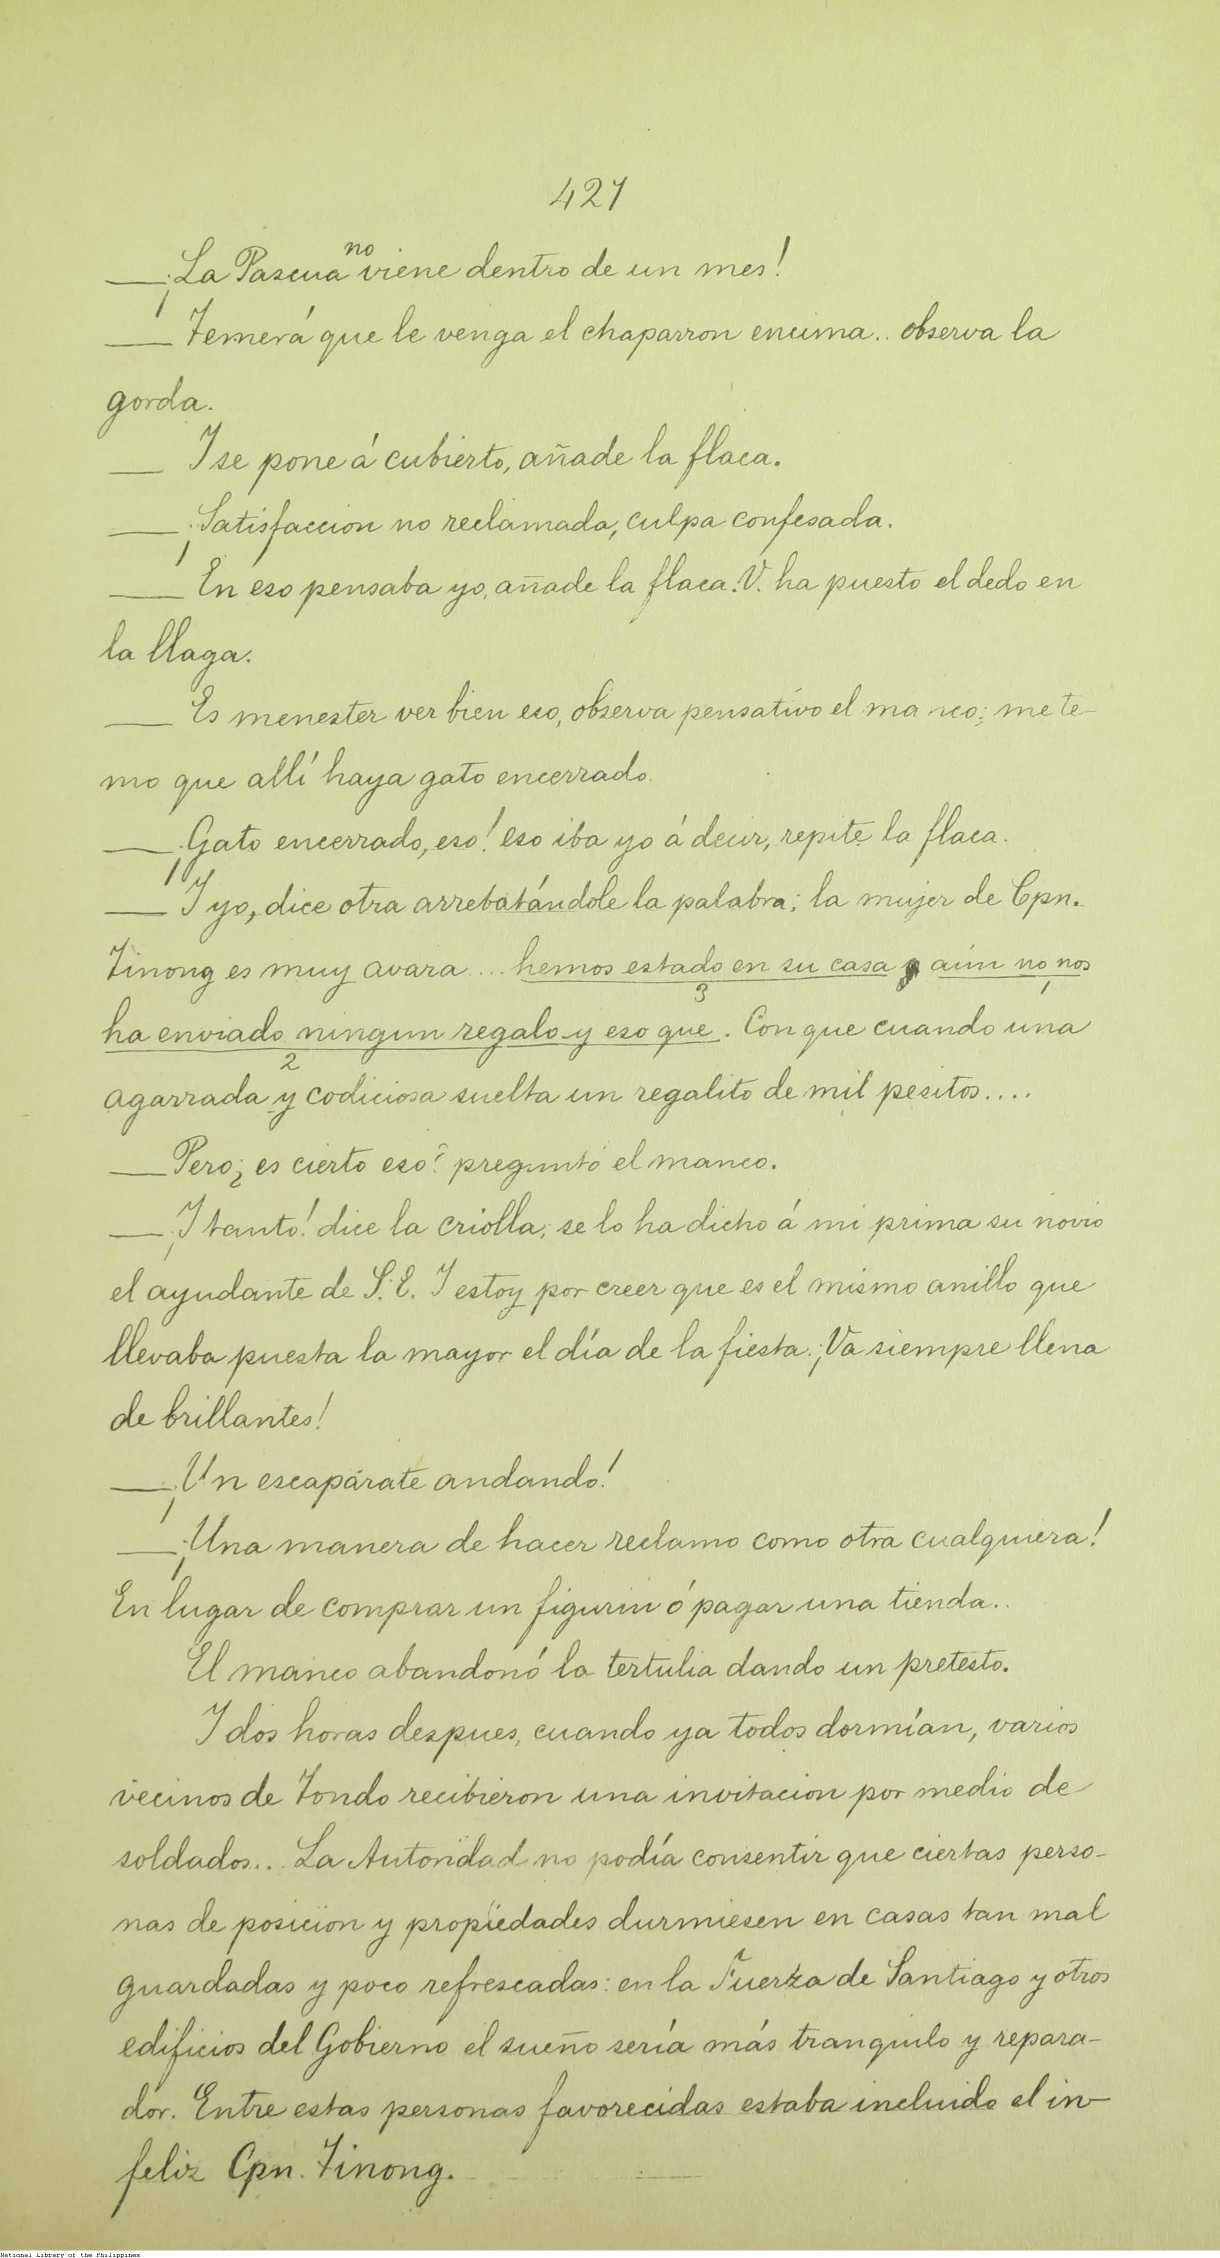 427
no
—¡La Pascua viene dentro de un mes!
— Temerá que le venga el chaparron encima.. observa la
gorda.
— I se pone á cubierto, añade la flaca.
—¡Satisfaccion no reclamada, culpa confesada.
— En eso pensaba yo, añade la flaca. V. ha puesto el dedo en
la llaga.
— Es menester ver bien eso, observa pensativo el manco; me te-
mo que allí haya gato encerrado.
—¡Gato encerrado, eso! eso iba yo á decir, repite la flaca.
— I yo, dice otra arrebatándole la palabra; la mujer de Cpn.
Tinong es muy avara ... hemos estado en su casa y aún no nos
3 1
ha enviado ningun regalo y eso que. Con que cuando una
2
agarrada y codiciosa suelta un regalito de mil pesitos....
— Pero ¿es cierto eso? preguntó el manco.
—¡I tanto! dice la criolla; se lo ha dicho á mi prima su novio
el ayudante de S. E. I estoy por creer que es el mismo anillo que
llevaba puesta la mayor el día de la fiesta. ¡Va siempre llena
de brillantes!
—¡Un escaparate andando!
—¡Una manera de hacer reclamo como otra cualquiera!
En lugar de comprar un figurin ó pagar una tienda..
El manco abandonó la tertulia dando un pretesto.
I dos horas despues, cuando ya todos dormían, varios
vecinos de Tondo recibieron una invitacion por medio de
soldados... La Autoridad no podía consentir que ciertas perso-
nas de posicion y propiedades durmiesen en casas tan mal
guardadas y poco refrescadas: en la Fuerza de Santiago y otros
edificios del Gobierno el sueño sería más tranquilo y repara-
dor. Entre estas personas favorecidas estaba incluido el in-
feliz Cpn. Tinong.
National Library of the Philippines